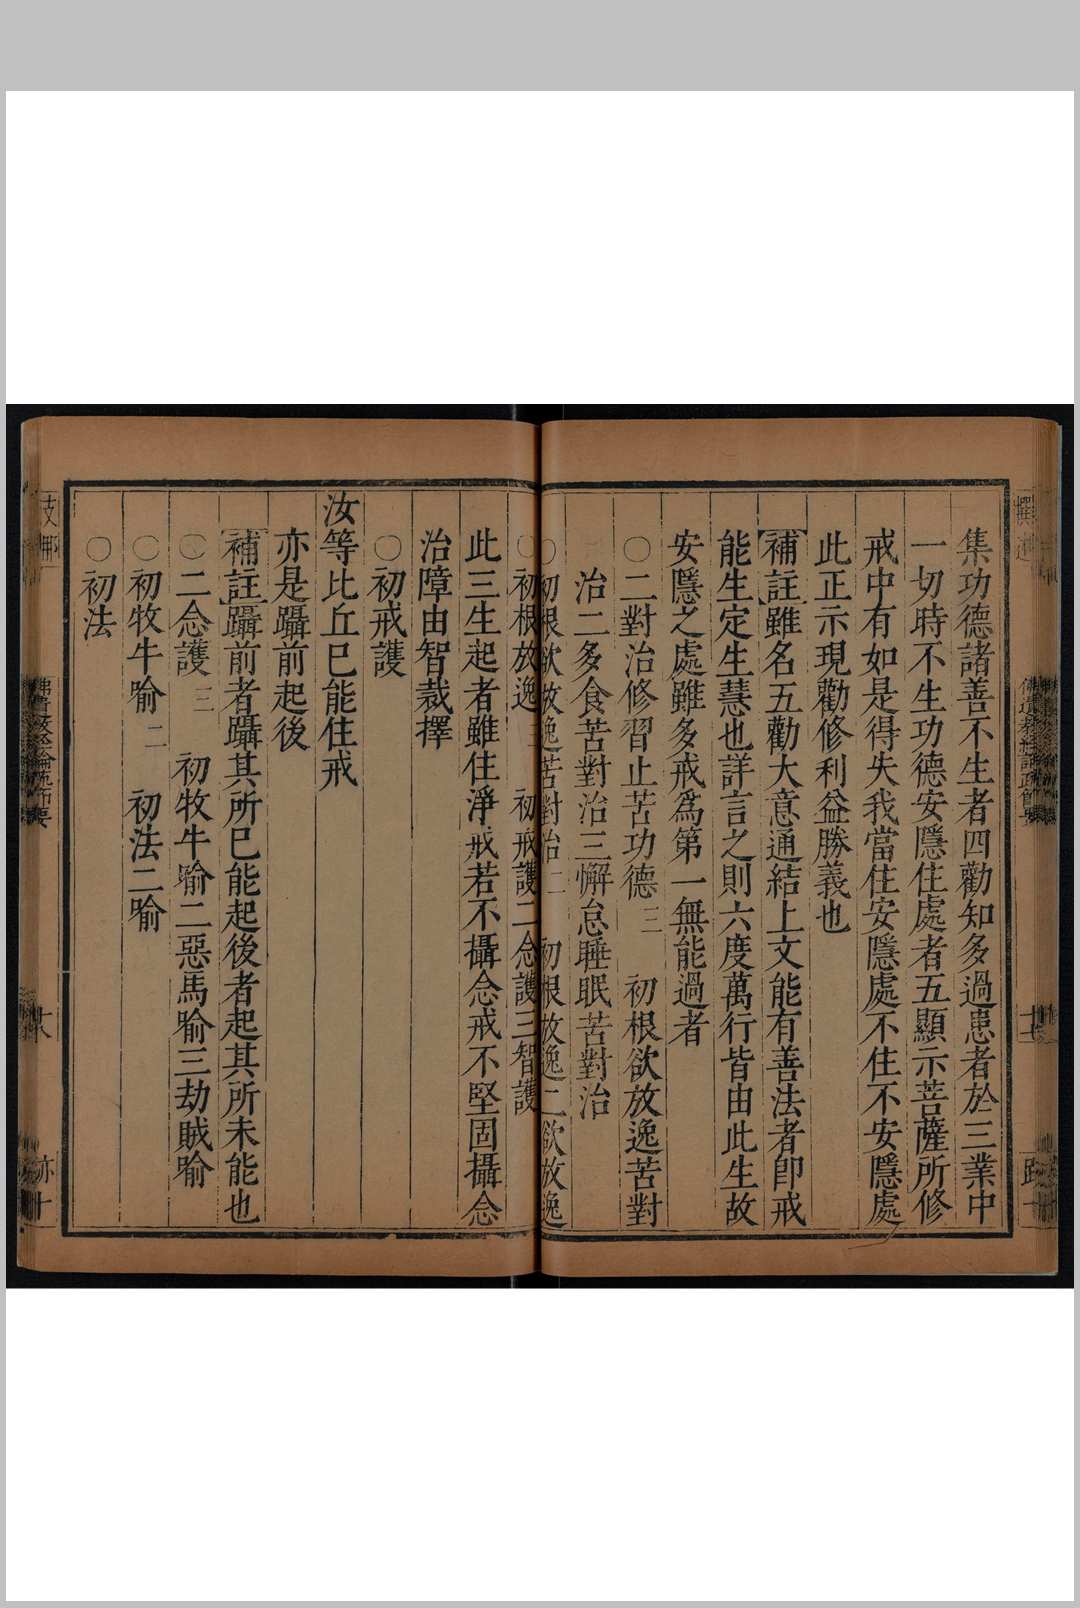 集功德諸善不生者四勸知多過患者於三業中
一切時不生功德安隱住處者五顯示菩薩所修
戒中有如是得失我當住安隱處不住不安隱處
此正示現勸修利益勝義也
補註雖名五勸大意通結上文能有善法者即戒
能生定生慧也詳言之則六度萬行皆由此生故
安隱之處雖多戒爲第一無能過者
〇二對治修習止苦功德三　初根欲放逸苦對
治二多食苦對治三懈怠睡眠苦對治
〇初根欲放逸苦對治二　初根放逸二欲放逸
〇初根放逸三　初戒護二念護三智護
此三生起者雖住淨戒若不攝念戒不堅固攝念
治障由智裁擇
〇初戒護
汝等比丘已能住戒
亦是躡前起後
補註躡前者躡其所已能起後者起其所未能也
〇二念護三　初牧牛喻二惡馬喻三劫賊喻
〇初牧牛喻二　初法二喻
〇初法